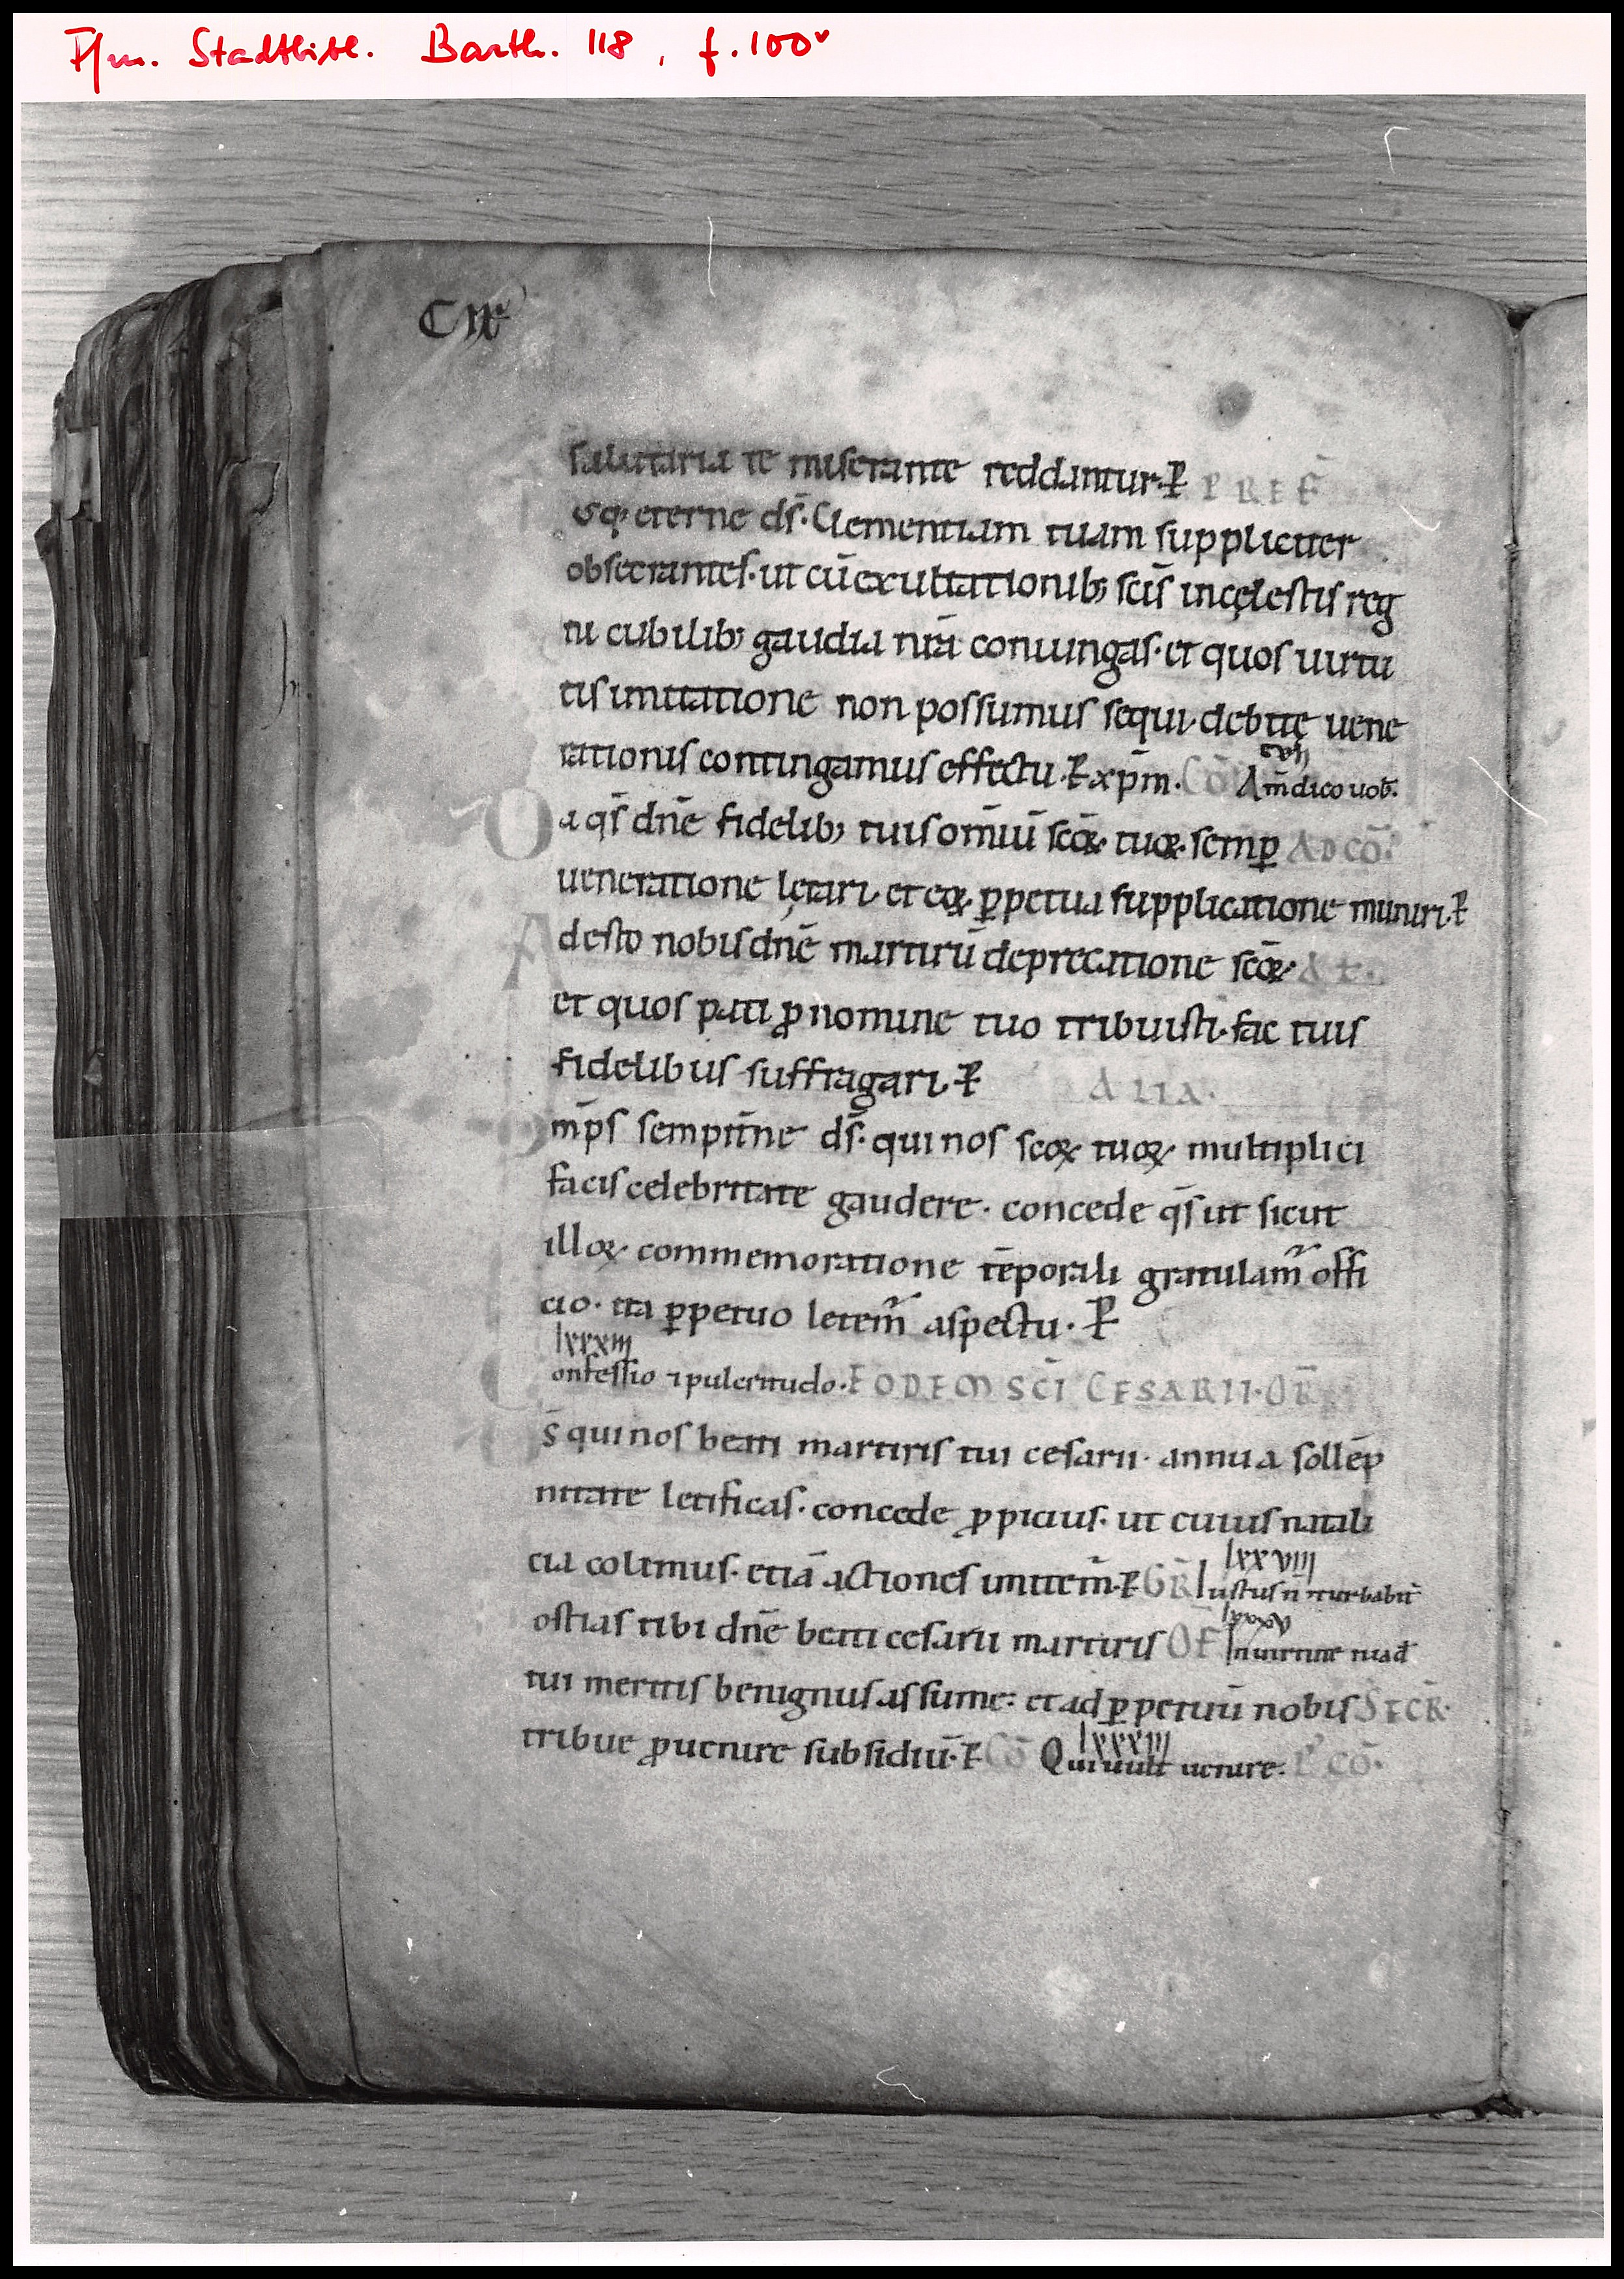 Ffm. Stadtbibl. Barth. 118, f. 100v
salutaria te miserante reddantur. P PREF
UQ eterne ds. Clementiam tuam suppliciter
obsecrantes. ut cū exultationib; scīs in cęlestis reg
ni cubilib; gaudia nrā coniungas. et quos uirtu
tis imitatione non possumus sequi. debitę uene
rationis contingamus effectu. P xp̄m. CŌ Am̄ dico uob.
a qs̄ dnē fidelib; tuis omiū scōꝝ tuoꝝ semꝑ AD CŌ.
ueneratione lętari. et eoꝝ ꝑpetua supplicatione muniri. P
Adesto nobis dnē martirū deprecatione scōꝝ
et quos pati ꝓ nomine tuo tribuisti. fac tuis
fidelibus suffragari. P ALIA.
Omp̄s sempitn̄e ds̄. qui nos scoꝝ tuoꝝ multiplici
facis celebritate gaudere. concede qs̄ ut sicut
illoꝝ commemoratione tēporali gratulam̄ offi
cio. ita ꝑpetuo letem̄ aspectu. P
lxxxiii
Confessio ⁊ pulcritudo. EODEM SCĪ CESARII. OR̄
Ds̄ qui nos beati martiris tui cesarii. annua sollēp
nitate letificas. concede ꝓpicius. ut cuius natali
lxxviiii
cia colimus. etiā actiones imitem̄. P GR̄ Iustus n̄ cturbabit̄
ostias tibi dnē beati cesarii martiris OF In uirtute tua d
tui meritis benignus assume: et ad ꝑpetuū nobis SECR̄.
lxxxiii
tribue ꝓuenire subsidiū. P CŌ Qui uult uenire. P CŌ.